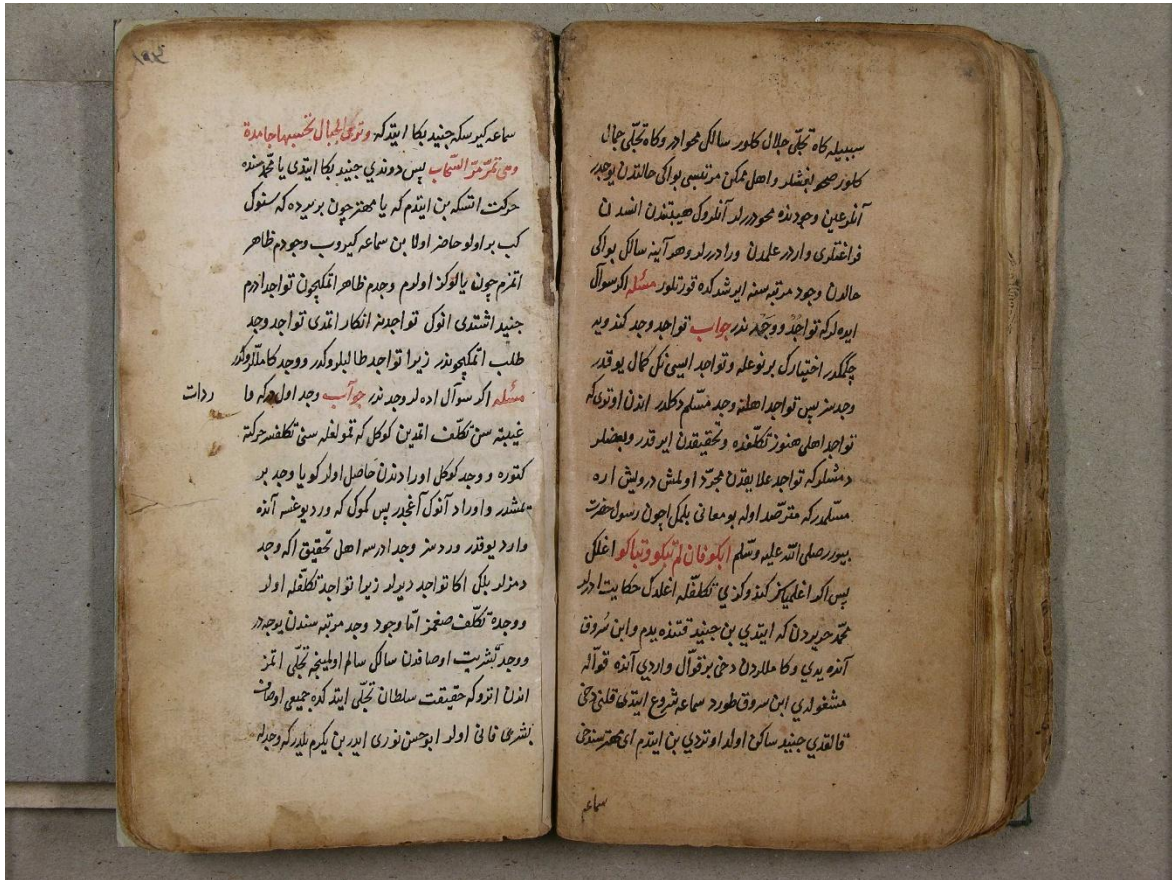 سببیله كاه تجلّی جلال كلور سالك محوادر وكاه تجلّی جمال
كلور صحو بغشلر واهل ممكن مرتبسی بو ایكی حالتدن یوجه‌در
آنلر عین وجودنده محودرلر آنلروك هیبتندن انسدن
فراغتلری واردر علمدن ورادرلر وهر آینه سالك بو ایكی
حالدن وجود مرتبه سنه ایرشدكده قورتلور مسئله اكر سوآل
ایده لركه تواجد ووجد ندر جواب تواجد وجد كندویه
چكمكدر اختیارك بر نوعله وتواجد ایسی نك كمال یوقدر
وجدسز پس تواجد اهلنه وجد مسلّم دكلدر اندن اوتوری كه
تواجد اهلی هنوز تكلّفنده وتحقیقدن ایرقدر وبعضلر
دمشلركه تواجد علایقدن مجرّد اولمش درویش لره
مسلّمدركه مترصّد اوله بو معانی بلمك اچون رسول حضرت
بیورر صلی الله علیه وسلّم ابكوا فان لم تبكوا وتباكوا اغلك
پس اكر اغلمیاسز كندوكزی تكلفله اغلدك حكایت ادرلر
محمّد حریردن كه ایتدی بن جنید قتنده یدم وابن مسروق
آنده یدی وكاملردن دخی بر قوّال واردی آنده قوّاله
مشغولدی ابن مسروق طوردی سماعه شروع ایتدی قلنی دخی
قالقدی جنید ساكن اولدی اوتردی بن ایتدم ای مهتر سن دخی
سماعه
سماعه كیرسكه جنید بكا ایتدكه وترى الجبال تحسبها جامدة
وهی تمرّ مرّ السّحاب پس دوندی جنید بكا ایتدی یا محمّد سنده
حركت اتسكه بن ایتدم كه یا مهتر چون بر یرده كه سنوك
كبی بر اولو حاضر اولا بن سماعه كیروب وجودم ظاهر
اتمزم چون یالوكز اولورم وجدم ظاهر اتمكیچون تواجد ادرم
جنید اشتدی انوك تواجدنه انكار اتمدی تواجد وجد
طلب اتمكیچوندر زیرا تواجد طالبلروكدر ووجد كامللروكدر
مسئله اكر سوآل اده لر وجد ندر جوآب وجد اولدركه وا
ردات
غیبیّه سن تكلّف اتمدین كوكل كه قبولغله سنی تكلّفسز حركته
كتوره ووجد كوكل اورادندن حاصل اولر كویا وجد بر
یمشدر واوراد آنوك آغجدر پس كموك كه وردی یوغسه آنده
وارد یوقدر وردسز وجد ادرسه اهل تحقیق اكا وجد
دمزلر بلكه اكا تواجد دیرلر زیرا تواجد تكلّفله اولر
ووجده تكلّف صغمز امّا وجود وجد مرتبه سندن یوجه‌در
ووجد بشریت اوصافندن سالك سالم اولمینجه تجلّی اتمز
اندن اتروكه حقیقت سلطان تجلّی ایتدكده جمیع اوصاف
بشری فانی اولر ابو حسن نوری ایدر بن یكرم یلدركه وجدله